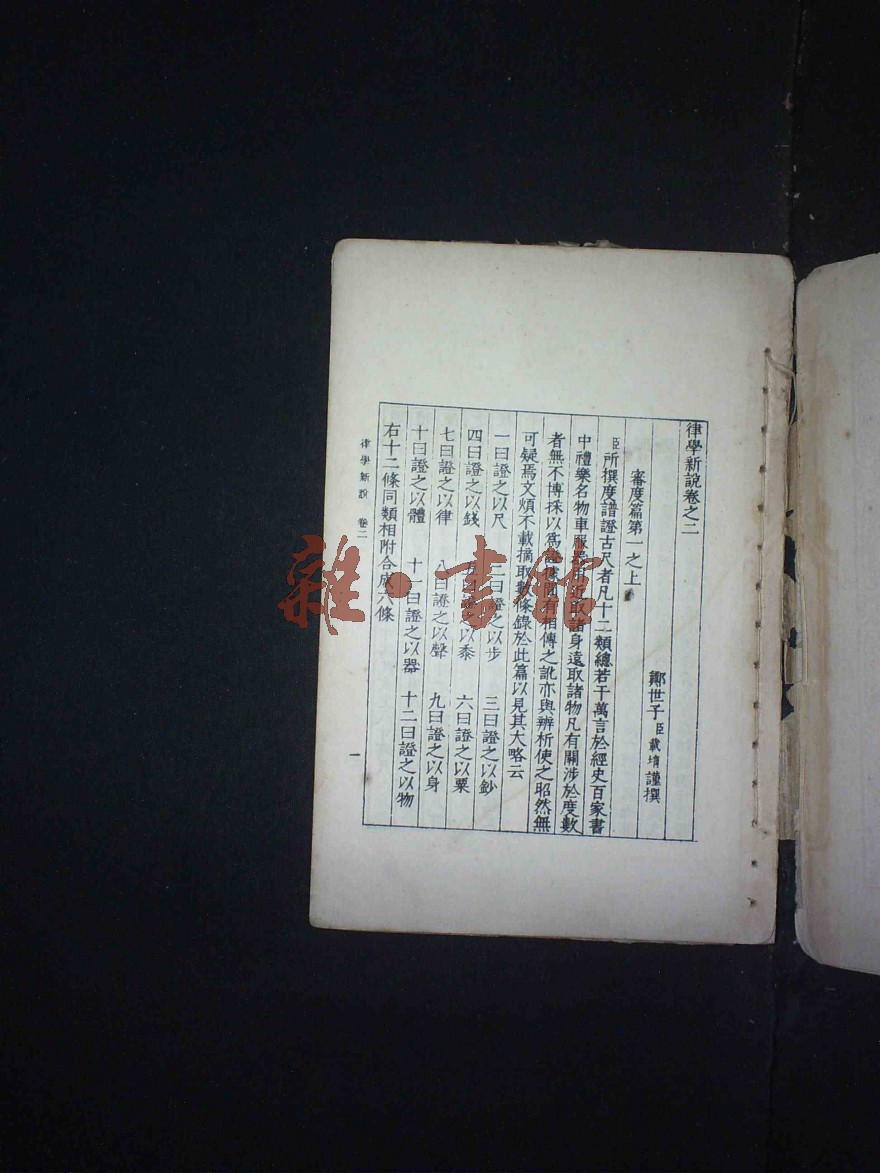 律學新說卷之二
鄭世子臣載堉謹撰
審度篇第一之上
臣所撰度譜證古尺者凡十二類總若干萬言於經史百家書
中禮樂名物車服器用近取諸身遠取諸物凡有關涉於度數
者無不博採以為證據間有相傳之訛亦與辨析使之昭然無
可疑焉文煩不載摘取數條錄於此篇以見其大略云
一曰證之以尺 二曰證之以步 三曰證之以鈔
四曰證之以錢 五曰證之以黍 六曰證之以粟
七曰證之以律 八曰證之以聲 九曰證之以身
十曰證之以體 十一曰證之以器 十二曰證之以物
右十二條同類相附合成六條
律學新說 卷二 一
雜·書館